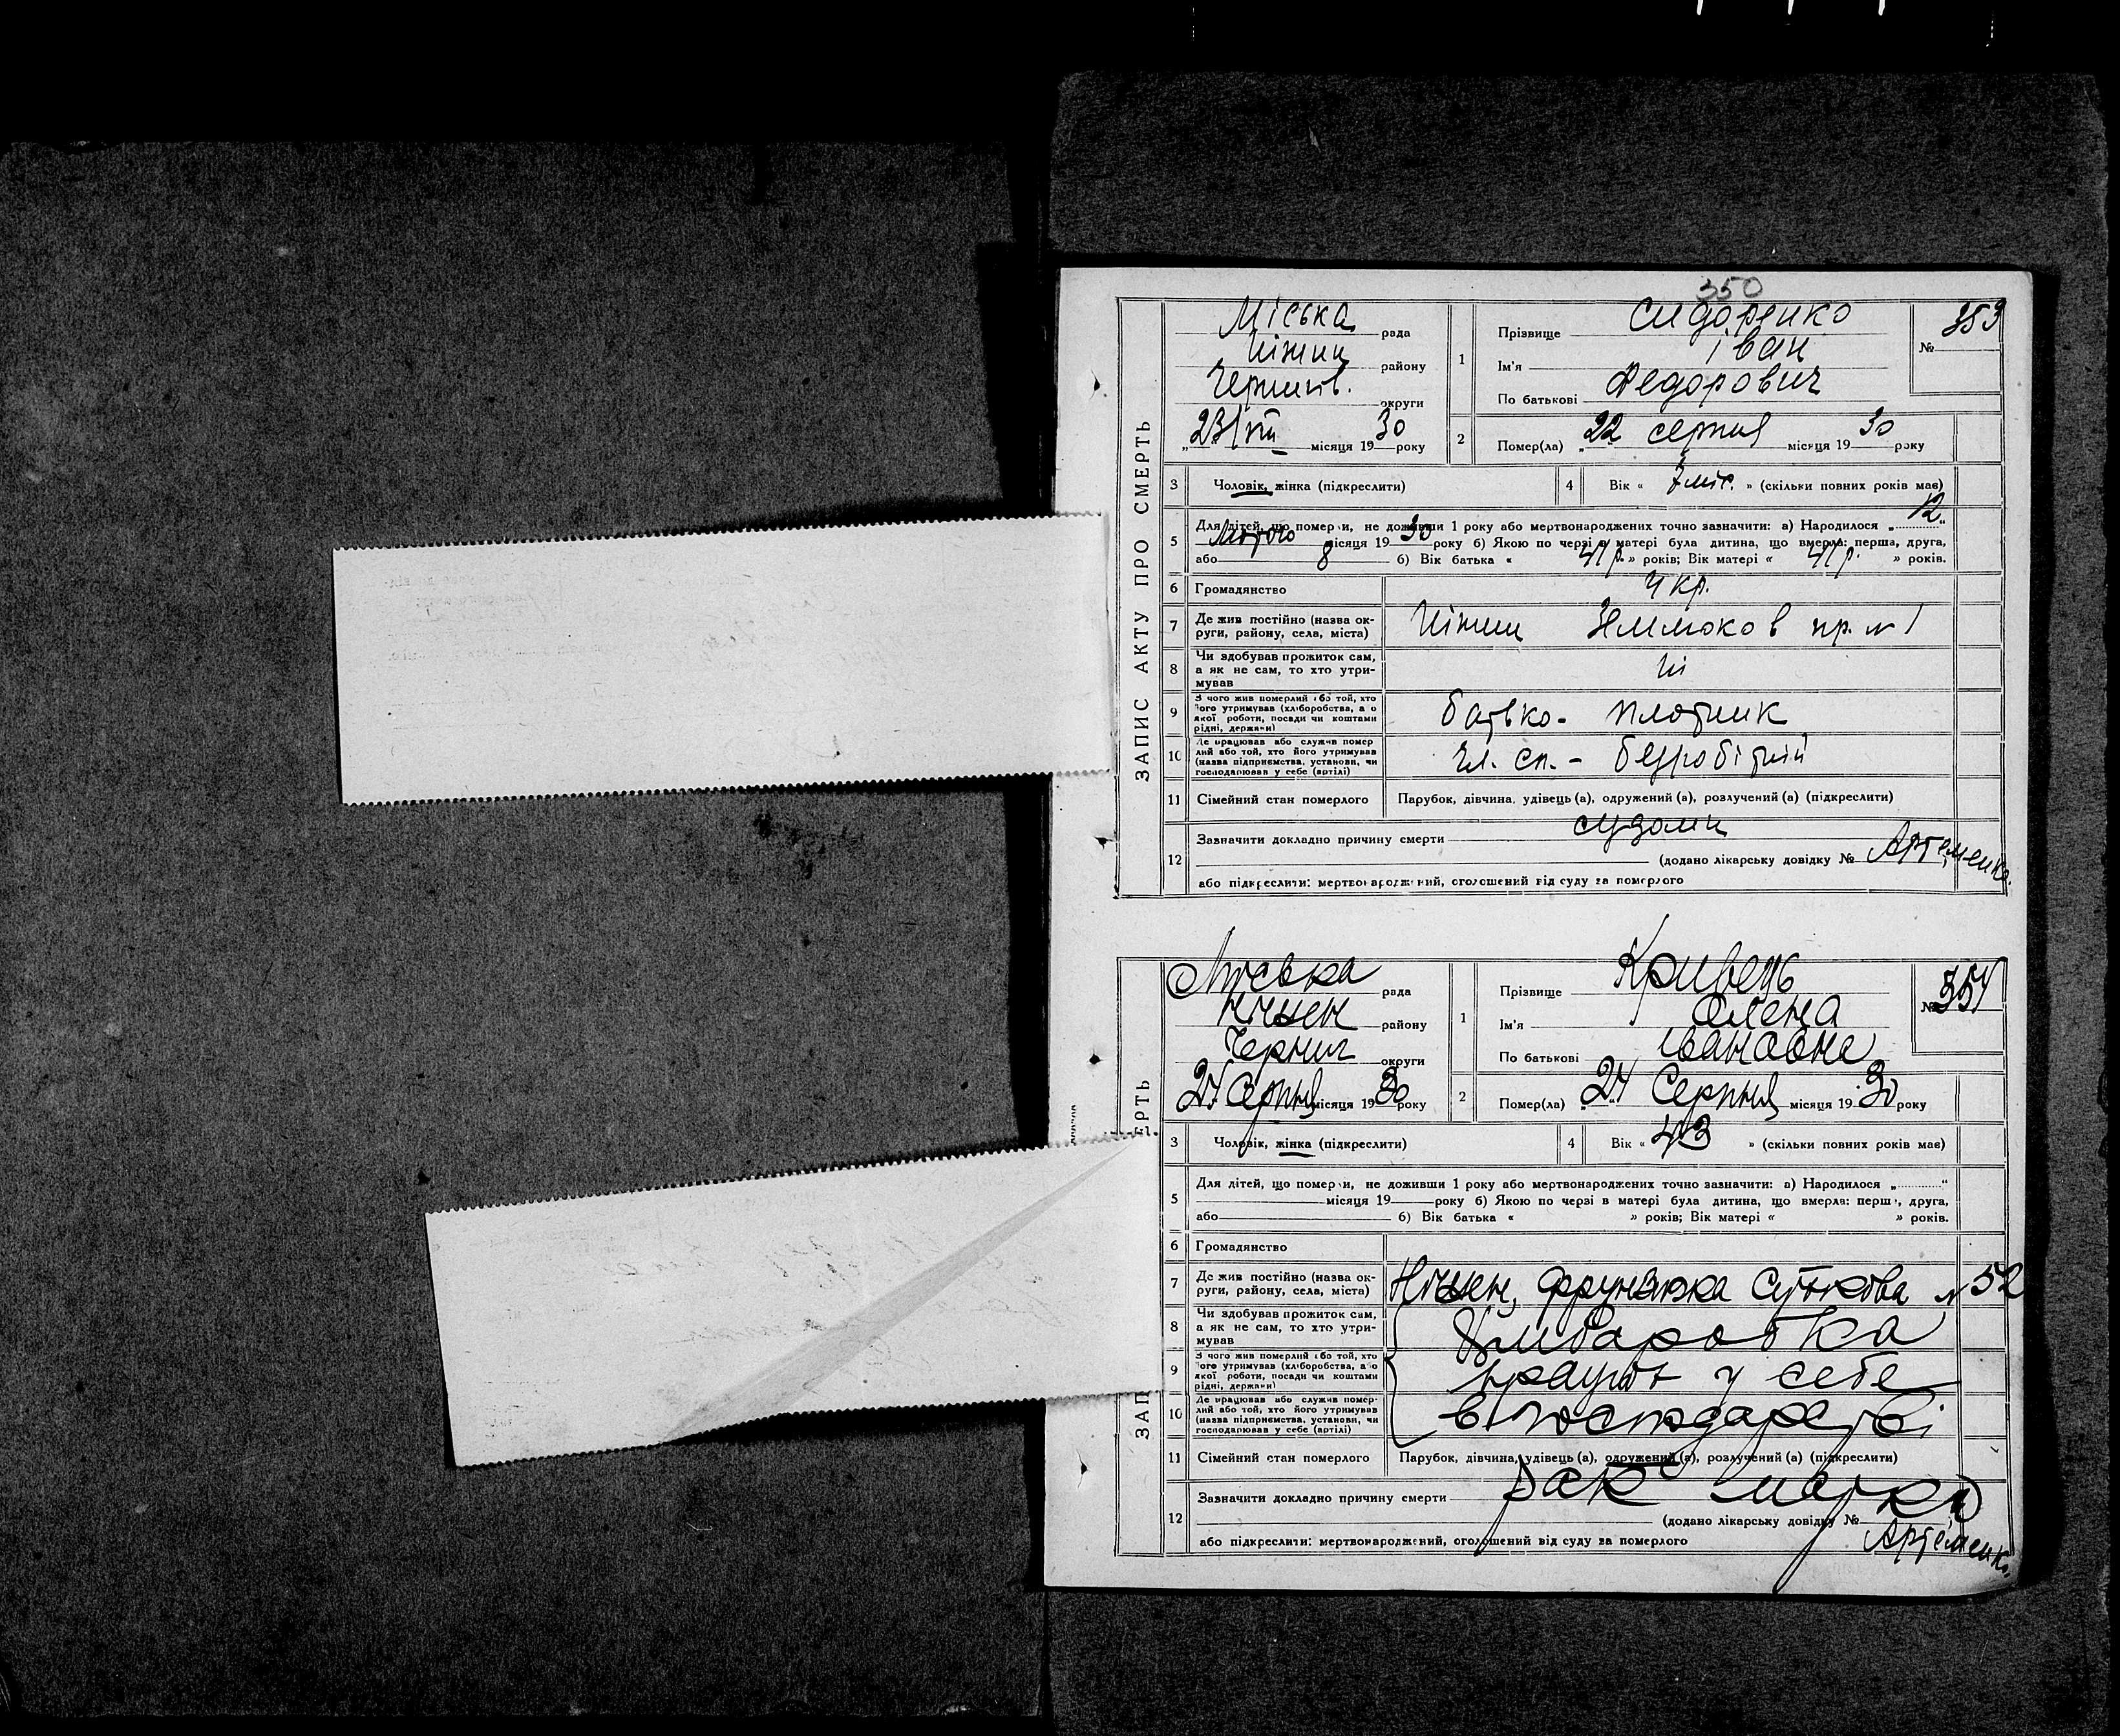 350
ЗАПИС АКТУ ПРО СМЕРТЬ
Міська рада
Ніжин району
Черніг. округи
„23/VIII місяця 1930 року
1 Прізвище Сидоренко
Ім'я Іван
По батькові Федорович
№ 353
2 Помер(ла) „22 серпня місяця 1930 року
3 Чоловік, жінка (підкреслити)
4 Вік « 7 міс. » (скільки повних років має)
5 Для дітей, що померли, не доживши 1 року або мертвонароджених точно зазначити: а) Народилося „12“
Лютого місяця 1930 року б) Якою по черзі в матері була дитина, що вмерла: перша, друга,
або 8 б) Вік батька « 41 р. » років; Вік матері « 41 р. » років.
6 Громадянство Укр.
7 Де жив постійно (назва округи, району, села, міста) Ніжин пр. № 1
8 Чи здобував прожиток сам, а як не сам, то хто утримував Ні
9 З чого жив померлий або той, хто його утримував (хліборобства, або якої роботи, посади чи коштами рідні, держави) батько - плотник
10 Де працював або служив померлий або той, хто його утримував (назва підприємства, установи, чи господарював у себе (артілі) чл. сп. - безробітній
11 Сімейний стан померлого Парубок, дівчина, удівець (а), одружений (а), розлучений (а) (підкреслити)
12 Зазначити докладно причину смерти судоми
(додано лікарську довідку № Артеменко.
або підкреслити: мертвонароджений, оголошений від суду за померлого
ЗАП ЕРТЬ
Міська рада
Ніжен району
Черниг округи
24 Серпня місяця 1930 року
1 Прізвище Кривець
Ім'я Олена
По батькові Івановна
№ 354
2 Помер(ла) „24 Серпня місяця 1930 року
3 Чоловік, жінка (підкреслити)
4 Вік « 43 » (скільки повних років має)
5 Для дітей, що померли, не доживши 1 року або мертвонароджених точно зазначити: а) Народилося „ “
місяця 19 року б) Якою по черзі в матері була дитина, що вмерла: перша, друга,
або б) Вік батька « » років; Вік матері « » років.
6 Громадянство
7 Де жив постійно (назва округи, району, села, міста) Ніжен, № 52
8 Чи здобував прожиток сам, а як не сам, то хто утримував
9 З чого жив померлий або той, хто його утримував (хліборобства, або якої роботи, посади чи коштами рідні, держави) у себе
10 Де працював або служив померлий або той, хто його утримував (назва підприємства, установи, чи господарював у себе (артілі) в господарстві
11 Сімейний стан померлого Парубок, дівчина, удівець (а), одружений (а), розлучений (а) (підкреслити)
12 Зазначити докладно причину смерти рак матки
(додано лікарську довідку №
або підкреслити: мертвонароджений, оголошений від суду за померлого Артеменк.